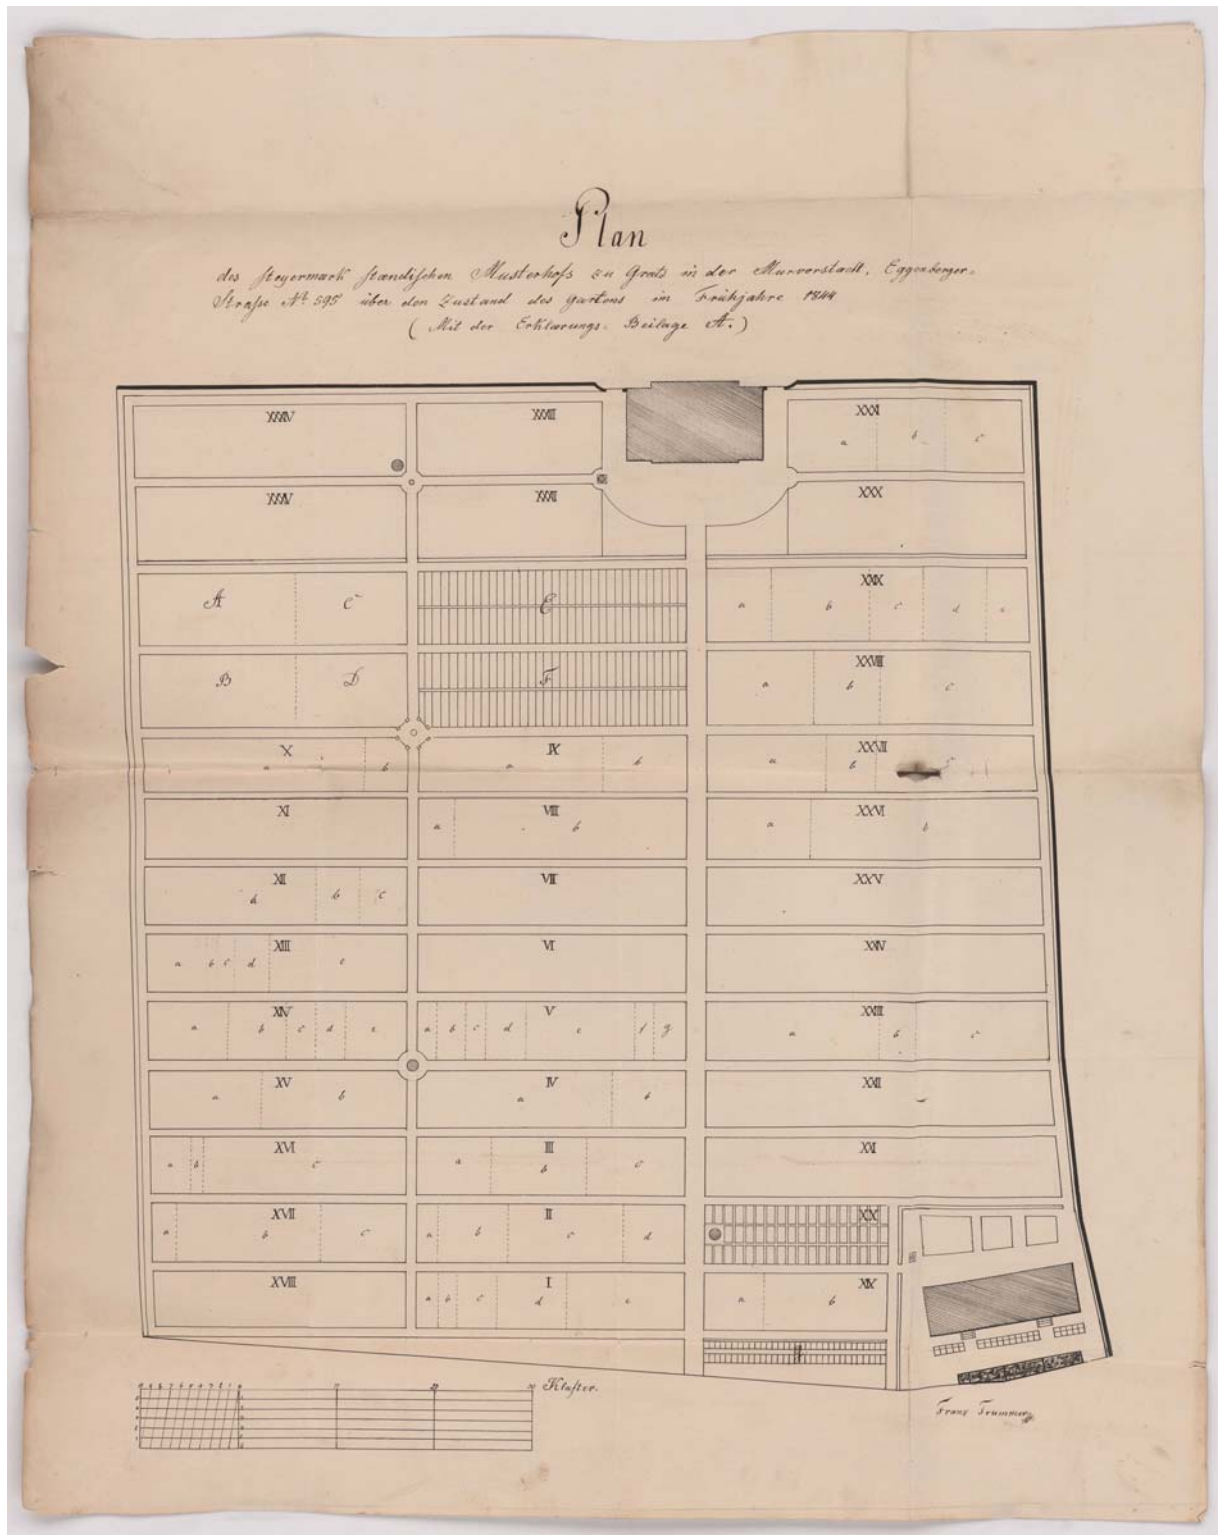 Plan
des steyermark ständischen Musterhofs zu Gratz in der Murvorstadt, Eggenberger-
Straße Nt. 595 über den Zustand des Gartens im Frühjahre 1844
( Mit der Erklärungs-Beilage A. )
XXXIV XXXIII XXXI
a b c
XXXV XXXII XXX
A C E XXIX
a b c d e
B D F XXVIII
a b c
X IX XXVII
a b a b a b
XI VIII XXVI
a b a b
XII VII XXV
a b c
XIII VI XXIV
a b c d e
XIV V XXIII
a b c d e a b c d e f g a b c
XV IV XXII
a b a b
XVI III XXI
a b c a b c
XVII II XX
a b c a b c d
XVIII I XIX
a b c d e a b
10 20 30 Klafter.
Franz Trummer